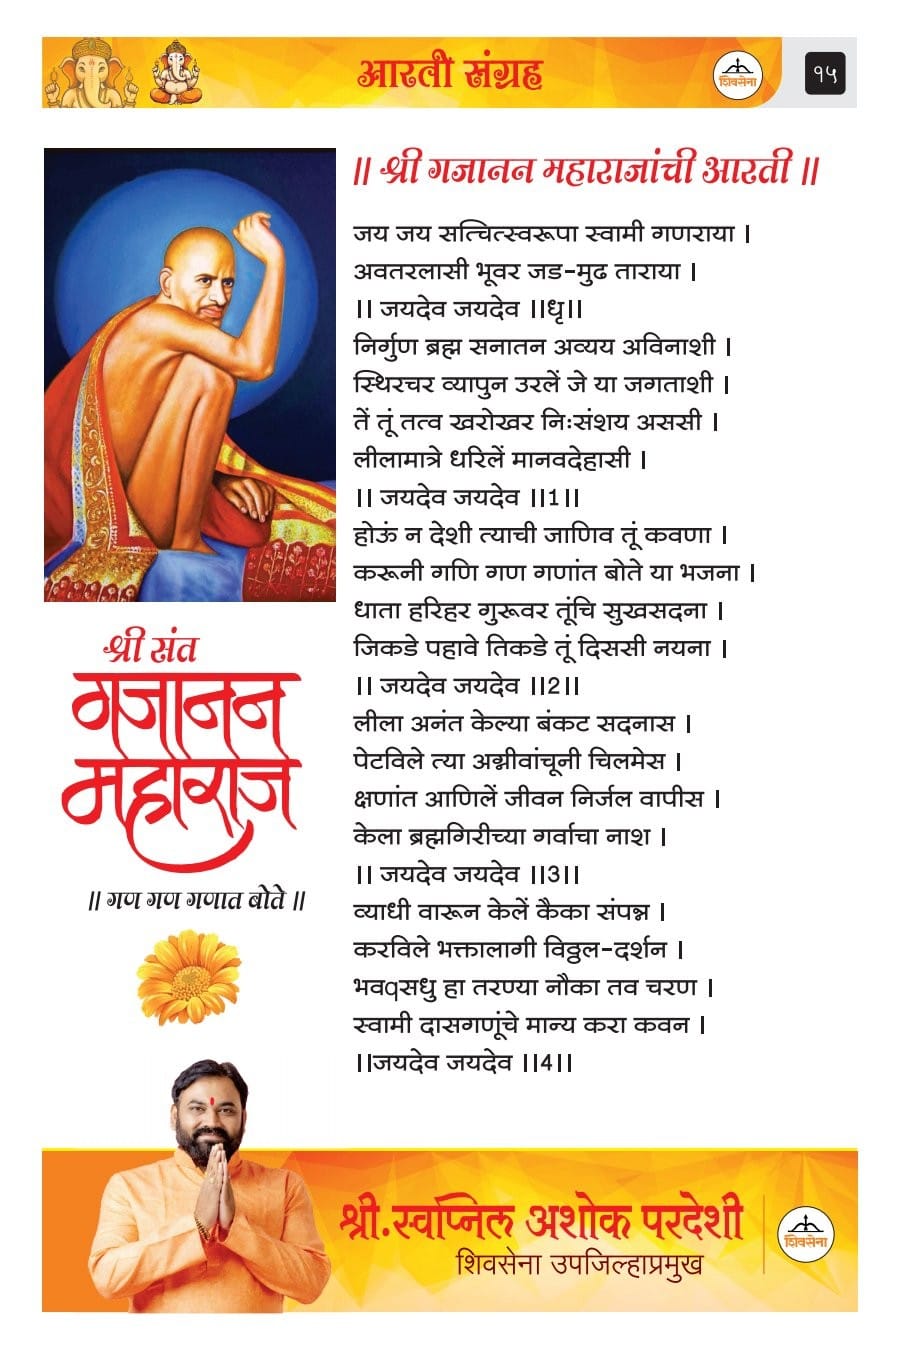 आरती संग्रह
शिवसेना
१५
॥ श्री गजानन महाराजांची आरती ॥
जय जय सत्चित्स्वरूपा स्वामी गणराया ।
अवतरलासी भूवर जड-मुढ ताराया ।
।। जयदेव जयदेव ।।धृ।।
निर्गुण ब्रह्म सनातन अव्यय अविनाशी ।
स्थिरचर व्यापुन उरलें जे या जगताशी ।
तें तूं तत्व खरोखर निःसंशय अससी ।
लीलामात्रे धरिलें मानवदेहासी ।
।। जयदेव जयदेव ।।1।।
होऊं न देशी त्याची जाणिव तूं कवणा ।
करूनी गणि गण गणांत बोते या भजना ।
धाता हरिहर गुरूवर तूंचि सुखसदना ।
जिकडे पहावे तिकडे तूं दिससी नयना ।
।। जयदेव जयदेव ।।2।।
लीला अनंत केल्या बंकट सदनास ।
पेटविले त्या अग्नीवांचूनी चिलमेस ।
क्षणांत आणिलें जीवन निर्जल वापीस ।
केला ब्रह्मगिरीच्या गर्वाचा नाश ।
।। जयदेव जयदेव ।।3।।
व्याधी वारून केलें कैका संपन्न ।
करविले भक्तालागी विठ्ठल-दर्शन ।
भवqसधु हा तरण्या नौका तव चरण ।
स्वामी दासगणूंचे मान्य करा कवन ।
।।जयदेव जयदेव ।।4।।
श्री संत
गजानन
महाराज
॥ गण गण गणात बोते ॥
श्री.स्वप्निल अशोक परदेशी
शिवसेना उपजिल्हाप्रमुख
शिवसेना